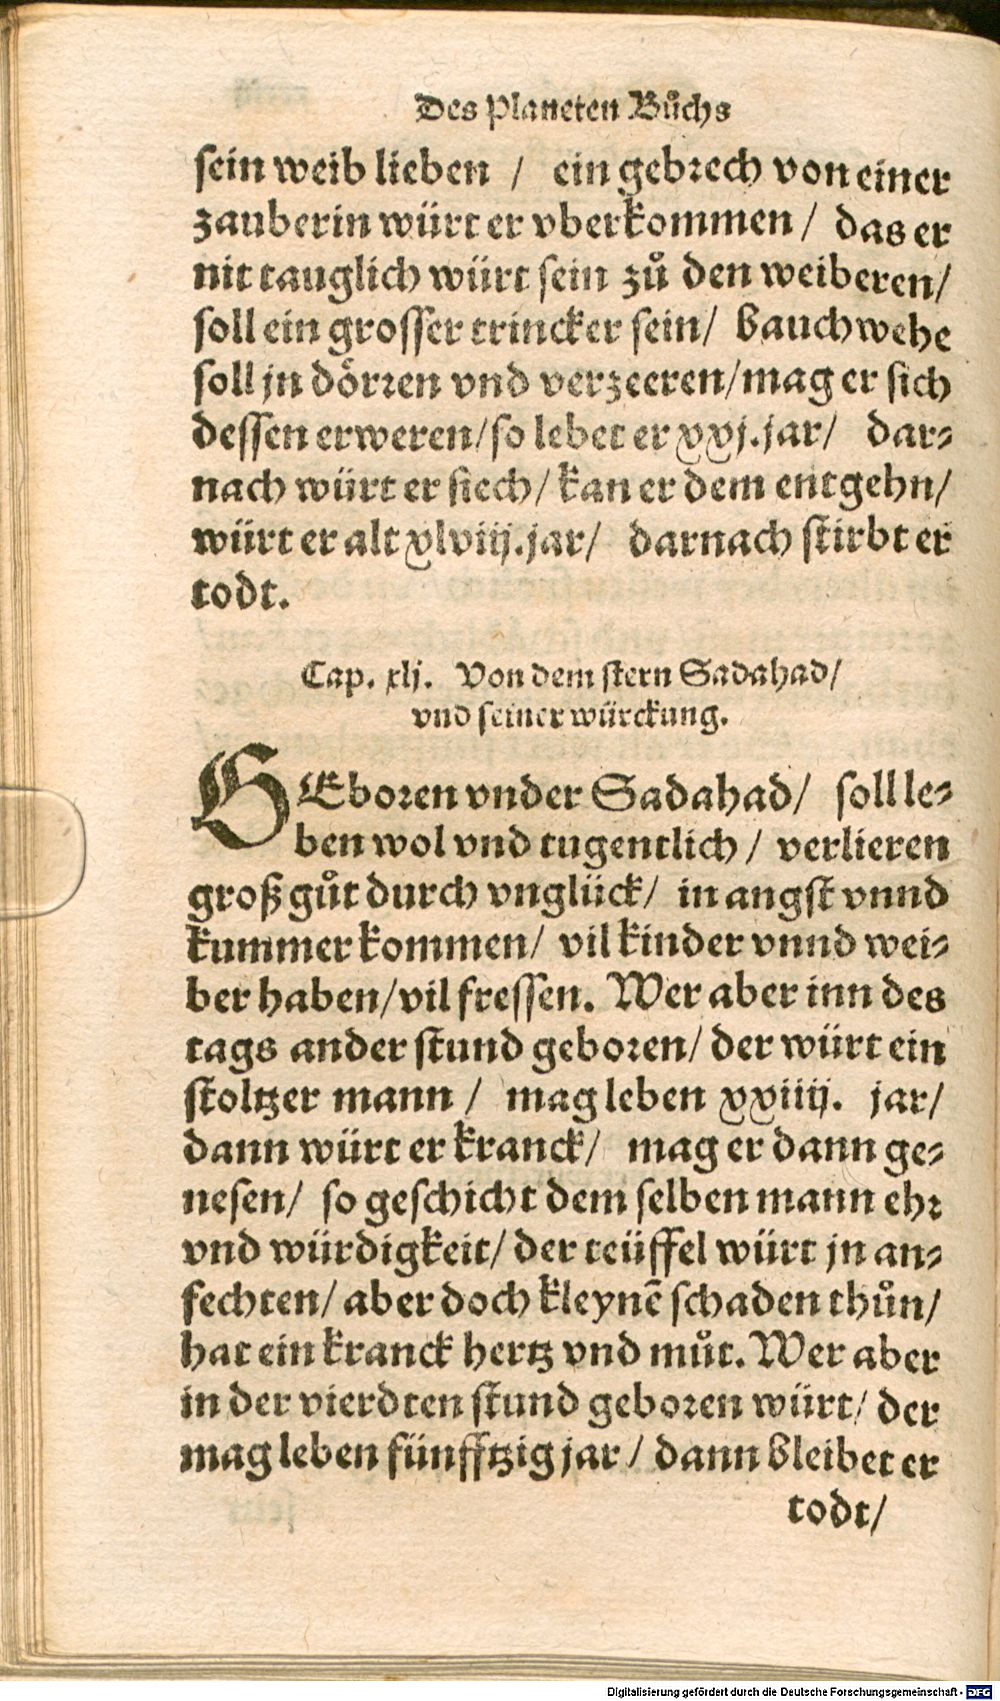 Des Planeten Bůchs
sein weib lieben / ein gebrech von einer
zauberin würt er vberkommen / das er
nit tauglich würt sein zů den weiberen /
soll ein grosser trincker sein / bauchwehe
soll jn dörren vnd verzeeren / mag er sich
dessen erweren / so lebet er xxj. jar / dar⸗
nach würt er siech / kan er dem entgehn /
würt er alt xlviij. jar / darnach stirbt er
todt.
Cap. xlj. Von dem stern Sadahad /
vnd seiner würckung.
GEboren vnder Sadahad / soll le⸗
ben wol vnd tugentlich / verlieren
groß gůt durch vnglück / in angst vnnd
kummer kommen / vil kinder vnnd wei⸗
ber haben / vil fressen. Wer aber inn des
tags ander stund geboren / der würt ein
stoltzer mann / mag leben xxiiij. jar /
dann würt er kranck / mag er dann ge⸗
nesen / so geschicht dem selben mann ehr
vnd würdigkeit / der teüffel würt jn an⸗
fechten / aber doch kleynẽ schaden thůn /
hat ein kranck hertz vnd můt. Wer aber
in der vierdten stund geboren würt / der
mag leben fünfftzig jar / dann bleibet er
todt /
Digitalisierung gefördert durch die Deutsche Forschungsgemeinschaft - DFG